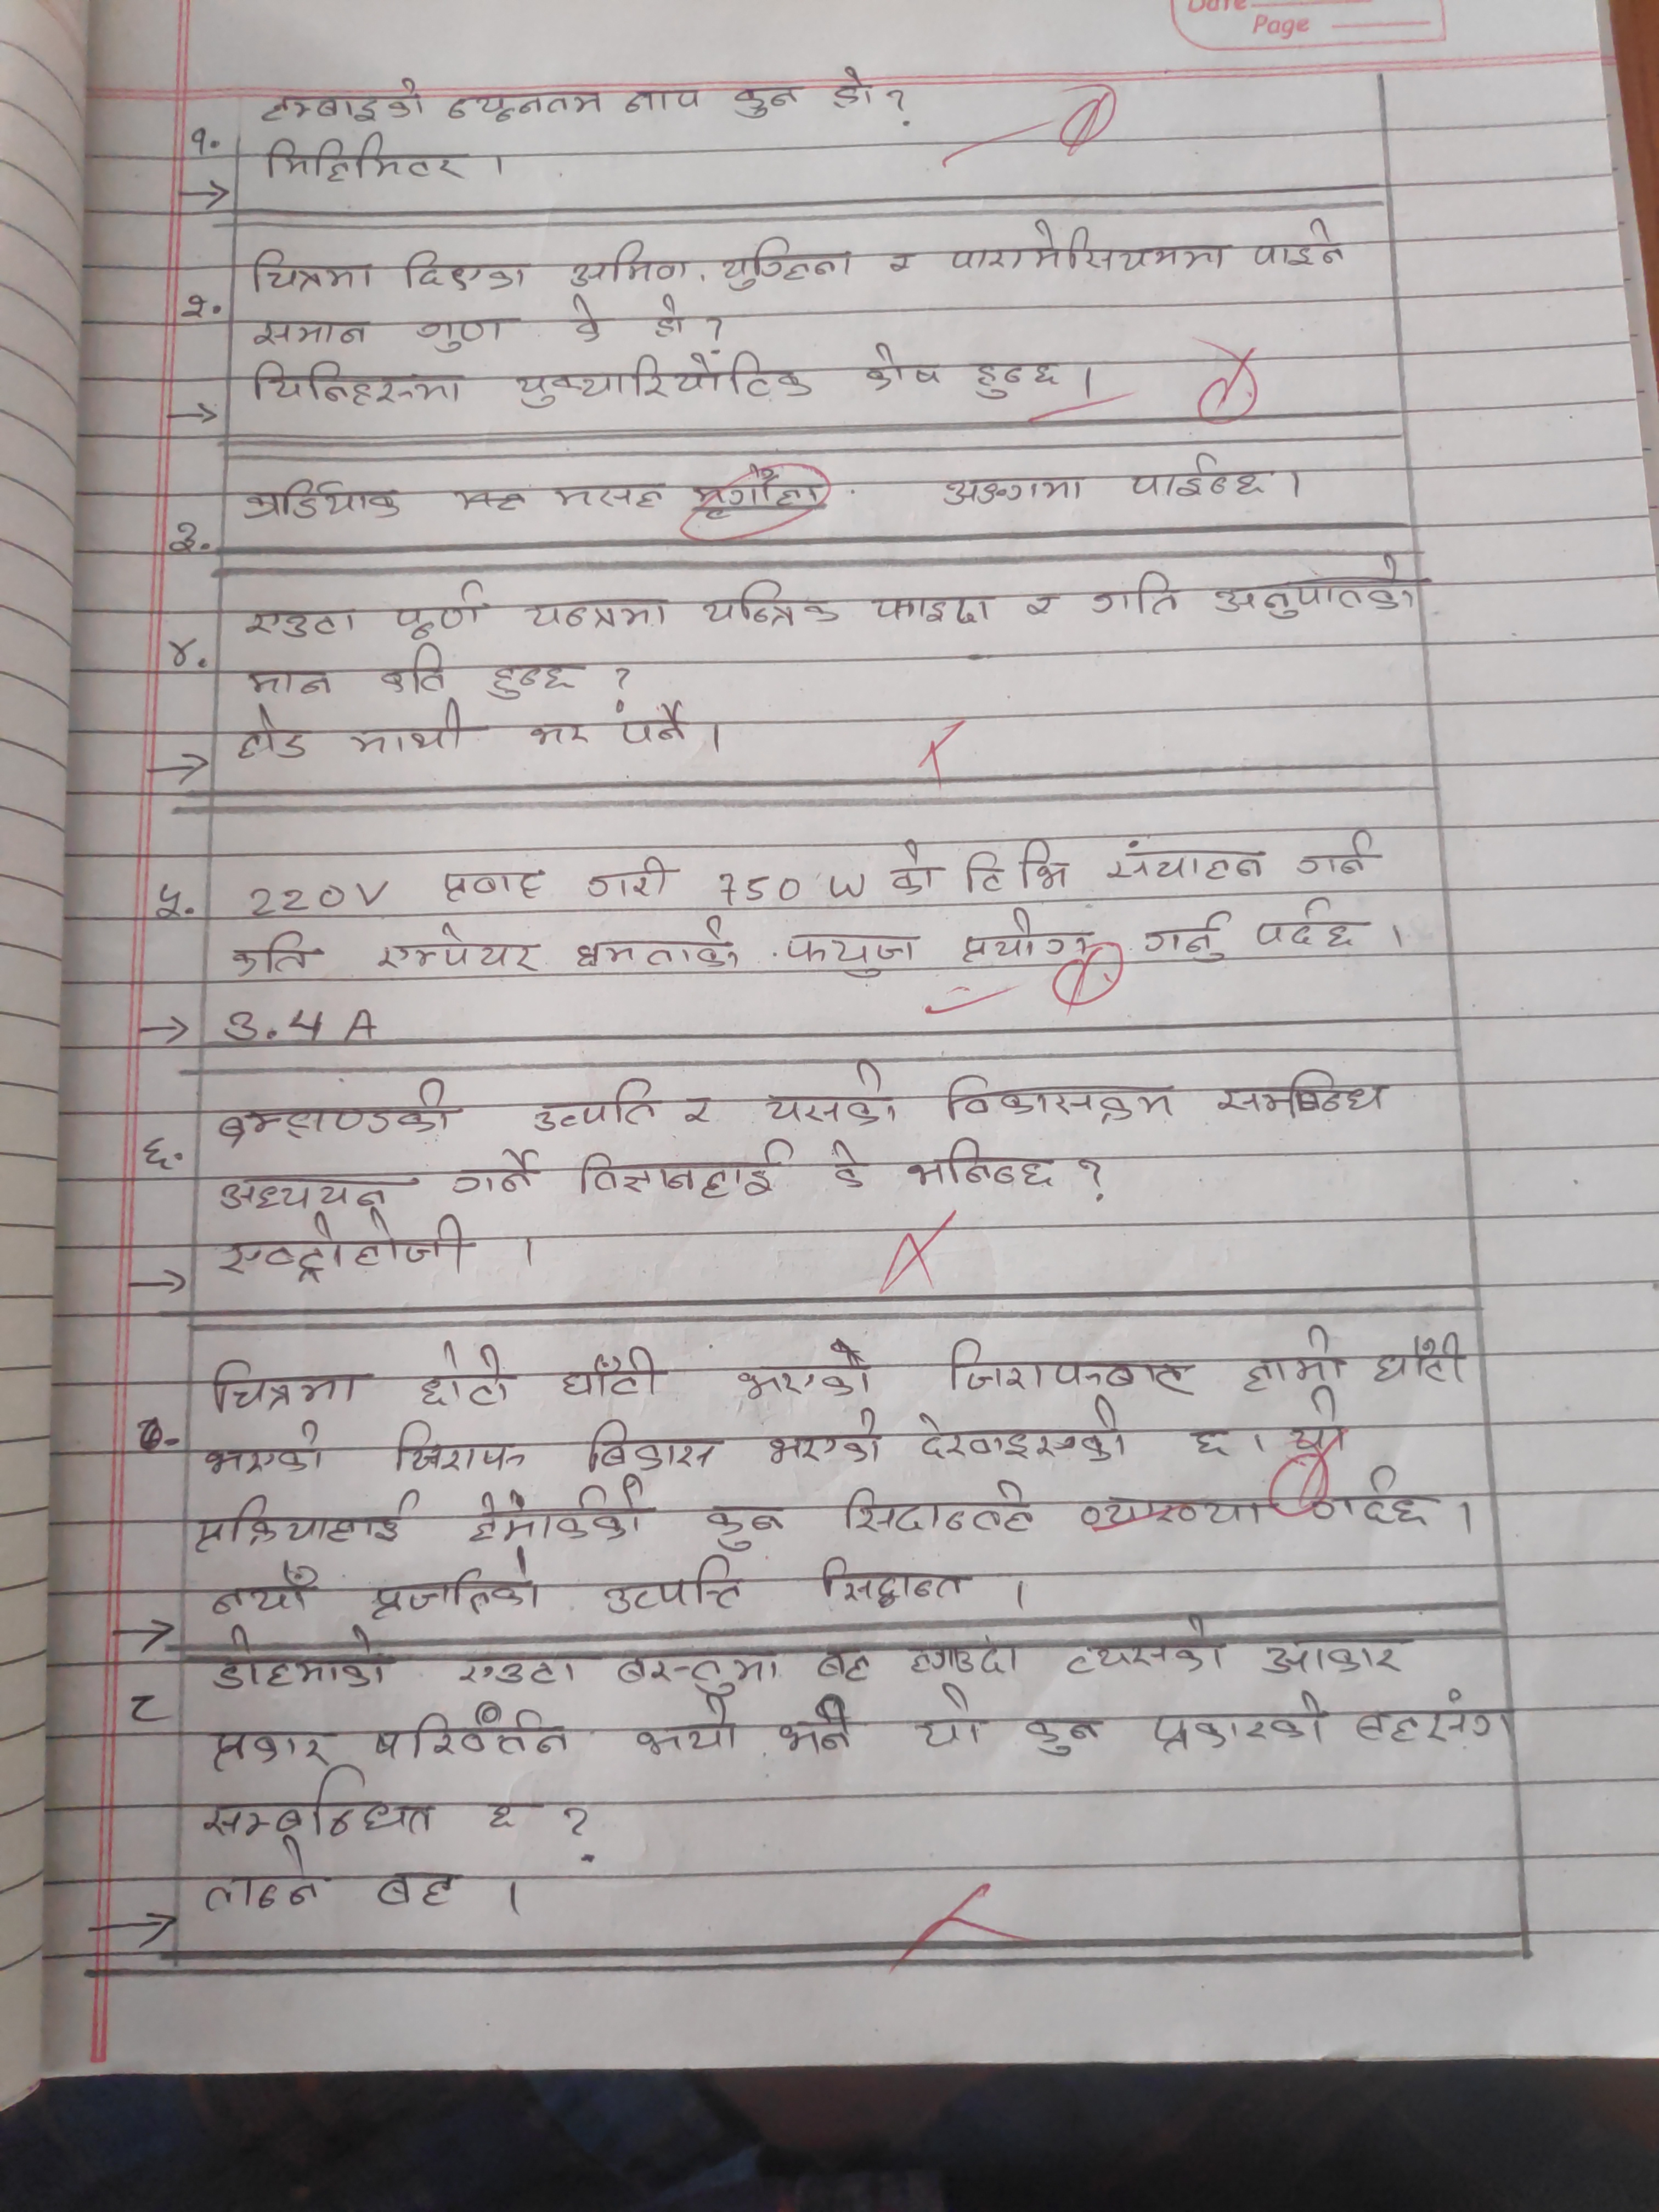 Date
Page
लम्बाइको न्यूनतम नाप कुन हो?
१.
→ मिलिमिटर ।
चित्रमा दिएका अमिवा, युग्लिना र पारामेसियममा पाइने
२. समान गुण के हो ?
→ यिनिहरुमा युक्यारियोटिक कोष हुन्छ ।
३. कार्डियाक मसल अङ्गमा पाईन्छ ।
एउटा पूर्ण यन्त्रमा यन्त्रिक फाइदा र गति अनुपातको
४. मान कति हुन्छ ?
→ लोड माथी भर पर्ने ।
५. 220V प्रवाह गरी 750 W को टि भि संचालन गर्न
कति एम्पियर क्षमताको फ्युज प्रयोग गर्नु पर्दछ ।
→ 3.4 A
ब्रम्हाण्डको उत्पति र यसको विकासक्रम सम्बन्धि
६. अध्ययन गर्ने विज्ञानलाई के भनिन्छ ?
→ एस्ट्रोलोजी ।
चित्रमा छोटो घाँटी भएको जिराफबाट लामो घाँटी
७. भएको जिराफ विकास भएको देखाइएको छ । यो
प्रक्रियालाई लेमार्कको कुन सिदान्तले व्याख्या गर्दछ ।
→ नयाँ प्रजातिको उत्पत्ति सिद्धान्त ।
डोल्माको एउटा बस्तुमा बल लगाउदा त्यसको आकार
८ प्रकार परिर्वतन भयो भने यो कुन प्रकारको बलसंग
सम्बन्धित छ ?
→ तान्ने बल ।